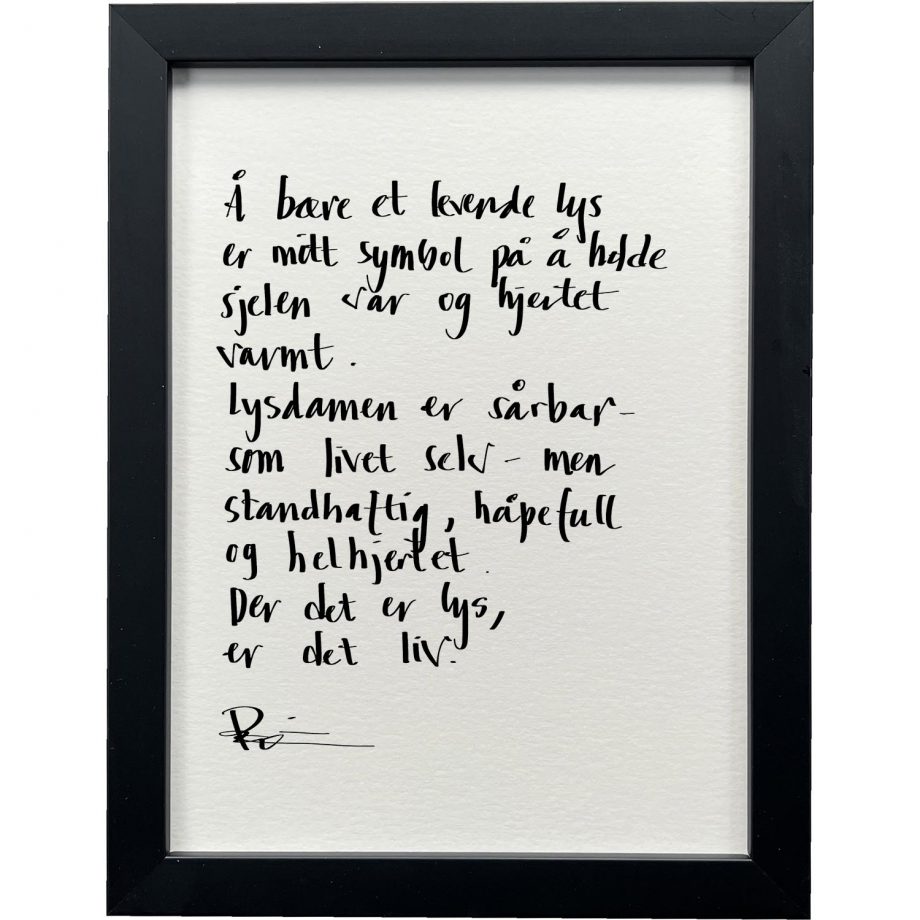 Å bære et levende lys
er mitt symbol på å holde
sjelen var og hjertet
varmt.
Lysdamen er sårbar-
som livet selv - men
standhaftig, håpefull
og helhjertet.
Der det er lys,
er det liv.